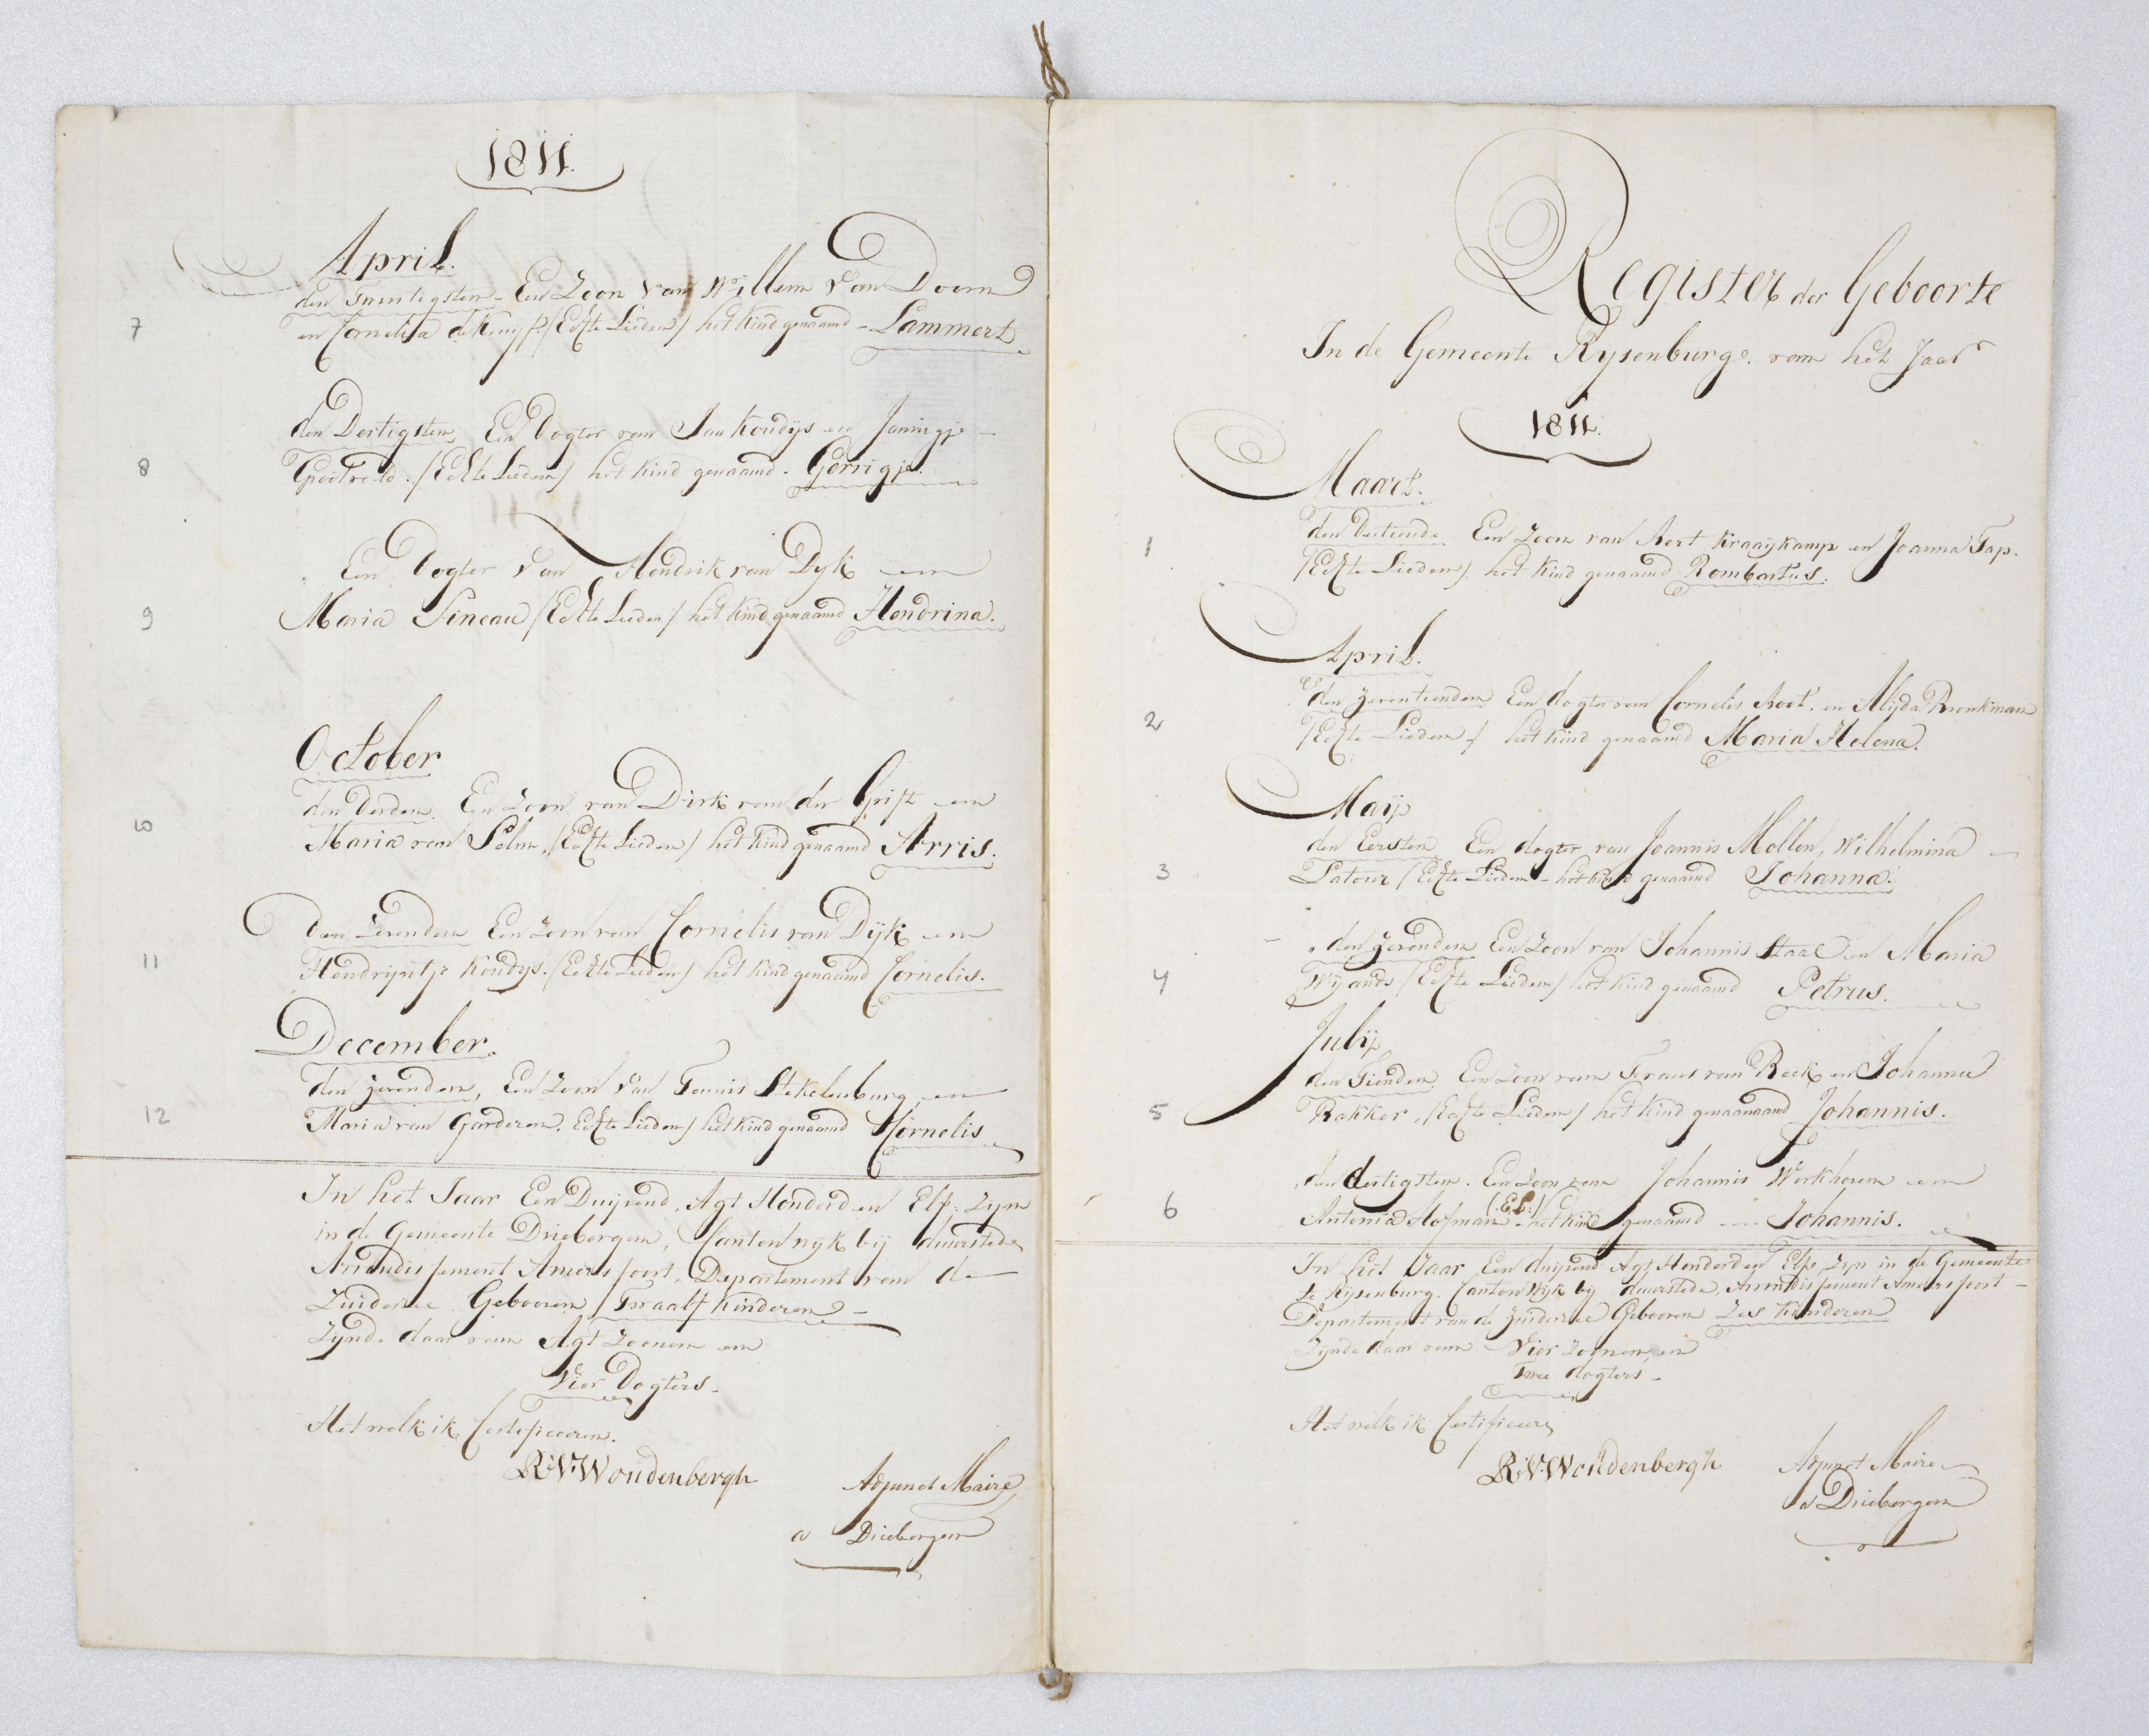 1811.
April.
7
den Twintigsten. Een Zoon van Willem van Doorn
en Cornelia de Kruyff /Echte Lieden/ het kind genaamd - Lammert
8
den Dertigsten Een Dogter van Jan Koudijs en Jannigje -
/Echte Lieden/ het kind genaamd. Gerrigje.
9
Een Dogter van Hendrik van Dyk en
Maria Pineau /Echte Lieden/ het kind genaamd Hendrina.
October
10
den Derden. Een Zoon van Dirk van der Grift en
Maria van Selm, /Echte Lieden/ het kind genaamd Arris.
11
Den Zevenden Een Zoon van Cornelis van Dijk en
Hendrijntje Koudys. /Echte Lieden/ het kind genaamd Cornelis.
December.
12
den zevenden, Een Zoon van Teunis Stekelenburg, en
Maria van Garderen. Echte Lieden/ het kind genaamd Cornelis
In het Jaar Een Duijzend, Agt Honderd en Elf: Zyn
in de Gemeente Driebergen, Canton wyk bij duurstede
Arrondissement Amersfoort, Departement van de
Zuiderzee Gebooren Twaalf Kinderen -
Zynde daar van Agt Zoonen en
Vier Dogters -
Het welk ik Certificeeren.
R:V:Woudenbergh
Adjunct Maire
a Driebergen
Register der Geboorte
In de Gemeente Rysenburg. van het Jaar
1811.
Maart.
1
den Dertiende Een Zoon van Aert Kraaykamp en Joanna Tap.
/Echte Lieden/, het kind genaamd Rombartus.
April.
2
den zeventienden Een dogter van Cornelis Root. en Alijda Bronkman
/Echte Lieden/ het kind genaamd Maria Helena.
Maij
3
den Eersten Een dogter van Joannis Mollen, Wilhelmina -
Latour /Echte Lieden - het kind genaamd Johanna.
4
den zevenden Een Zoon van Johannis Staal en Maria
Wijands /Echte Lieden/ het kind genaamd Petrus.
Julij
5
den Tienden Een Zoon van Frans van Beek en Johanna
Bakker, /Echte Lieden/ het kind genaamaamd Johannis.
6
den dertigsten. Een Zoon van Johannis Werkhoven en
Antonia Hofman (:E.L:) het kind genaamd - Johannis.
In het Jaar Een duijzend Agt Honderd en Elf, zyn in de Gemeente
te Rysenburg. Canton Wyk bij duurstede, Arrondissement Amersfoort -
Departement van de zuiderzee Gebooren Zes Kinderen
Zynde daar van Vier Zoonen, en
Twee dogters -
Het welk ik Certificeere
R:V:Woudenbergh
Adjunct Maire
a Driebergen